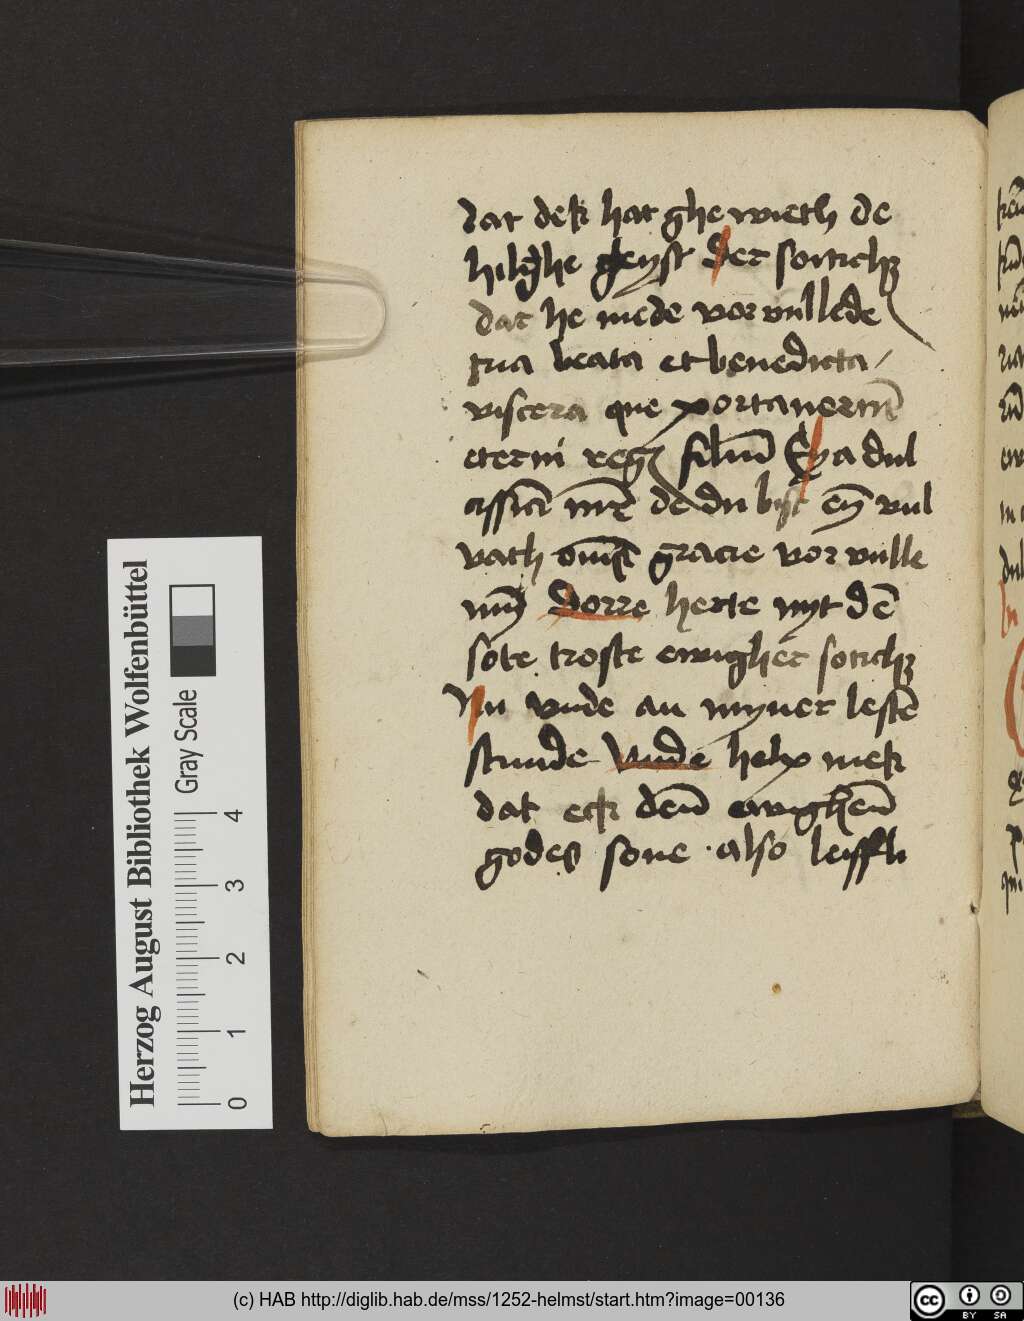 dat dek hat ghe wieth de
hilghe geyst der soiticheyt
dat he mede vor vullede
tua beata et benedicta /
viscera que portauerūt
eterni regis filiū Eya dul
cissīa mr̄ de du bist eyn vul
vath om̄is gracie vor vulle
myn dorre herte myt dē
sote troste ewigher soticheyt
Nu vnde an myner lestē
stunde vnde help mek
dat eck denn ewighenn
godes sone · also leiffli
Herzog August Bibliothek Wolfenbüttel
Gray Scale
0 1 2 3 4
(c) HAB http://diglib.hab.de/mss/1252-helmst/start.htm?image=00136
cc BY SA